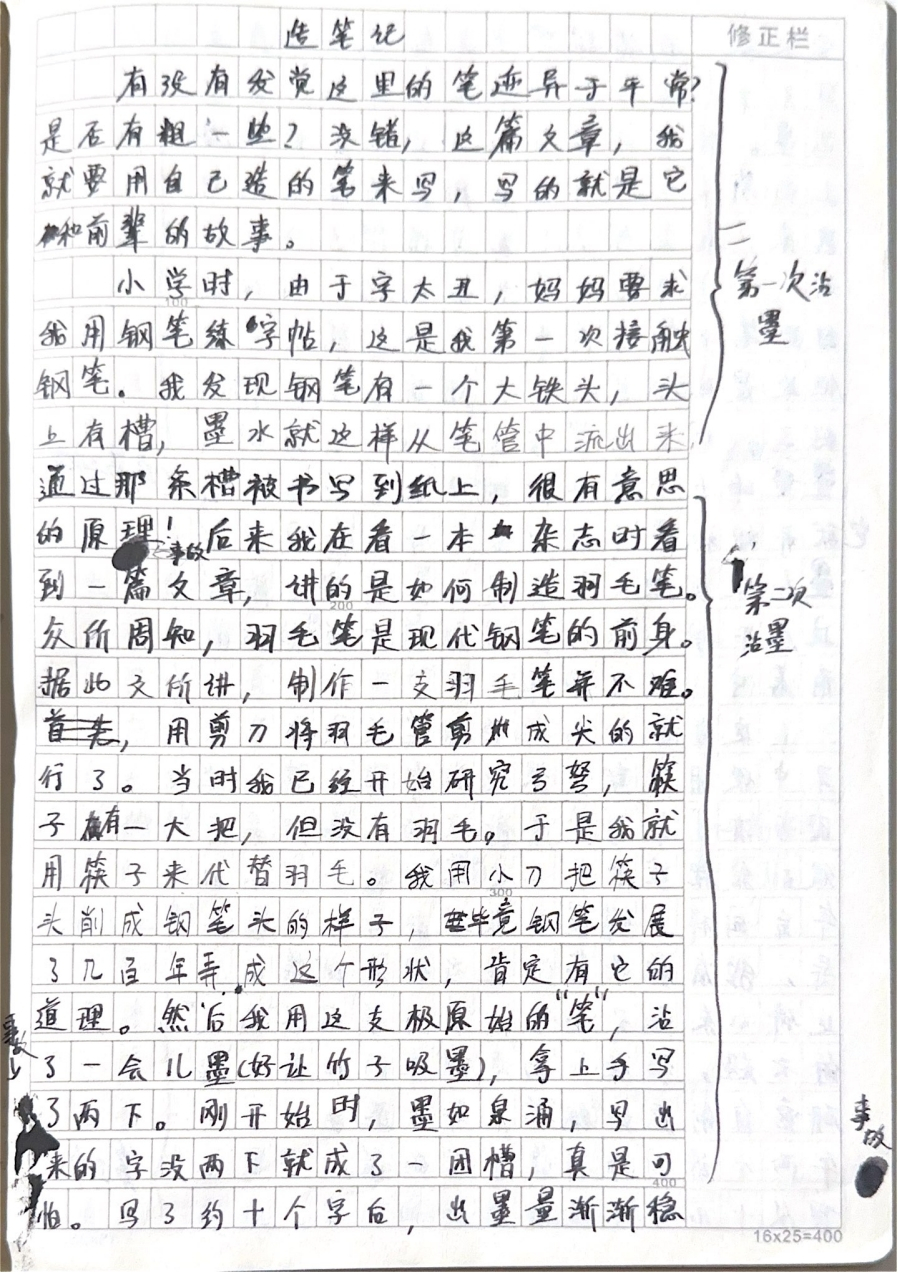 造笔记
修正栏
有没有发觉这里的笔迹异于平常?
是否有粗一些?没错,这篇文章,我
就要用自己造的笔来写,写的就是它
和前辈的故事。
小学时,由于字太丑,妈妈要求
100
我用钢笔练字帖,这是我第一次接触
钢笔。我发现钢笔有一个大铁头,头
上有槽,墨水就这样从笔管中流出来,
第一次沾
墨
通过那条槽被书写到纸上,很有意思
的原理!后来我在看一本杂志时看
事故
到一篇文章,讲的是如何制造羽毛笔。
200
众所周知,羽毛笔是现代钢笔的前身。
据此文所讲,制作一支羽毛笔并不难。
首先,用剪刀将羽毛管剪成尖的就
行了。当时我已经开始研究弓弩,筷
子有一大把,但没有羽毛。于是我就
用筷子来代替羽毛。我用小刀把筷子
300
头削成钢笔头的样子,毕竟钢笔发展
了几百年弄成这个形状,肯定有它的
道理。然后我用这支极原始的“笔”,沾
了一会儿墨(好让竹子吸墨),拿上手写
了两下。刚开始时,墨如泉涌,写出
来的字没两下就成了一团槽,真是可
400
怕。写了约十个字后,出墨量渐渐稳
第二次
沾墨
事故
事故
16x25=400